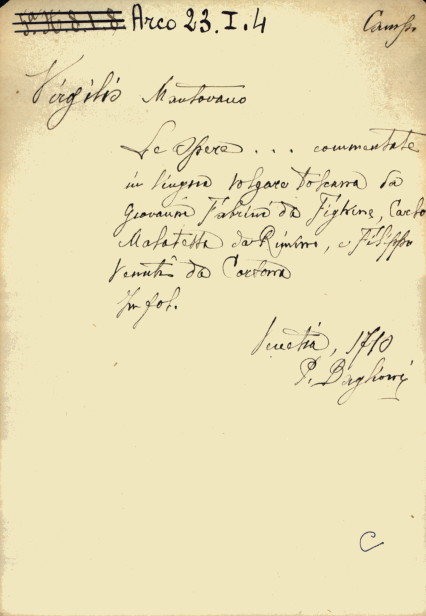 Arco 23.I.4
Virgilio Mantovano
Le Opere . . . commentate
in lingua volgare toscana da
Giovanni Fabrini da Fighine, Carlo
Malatesta da Rimino, e Filippo
Venuti da Cortona
In fol.
Venetia, 1710
P. Baglioni
C